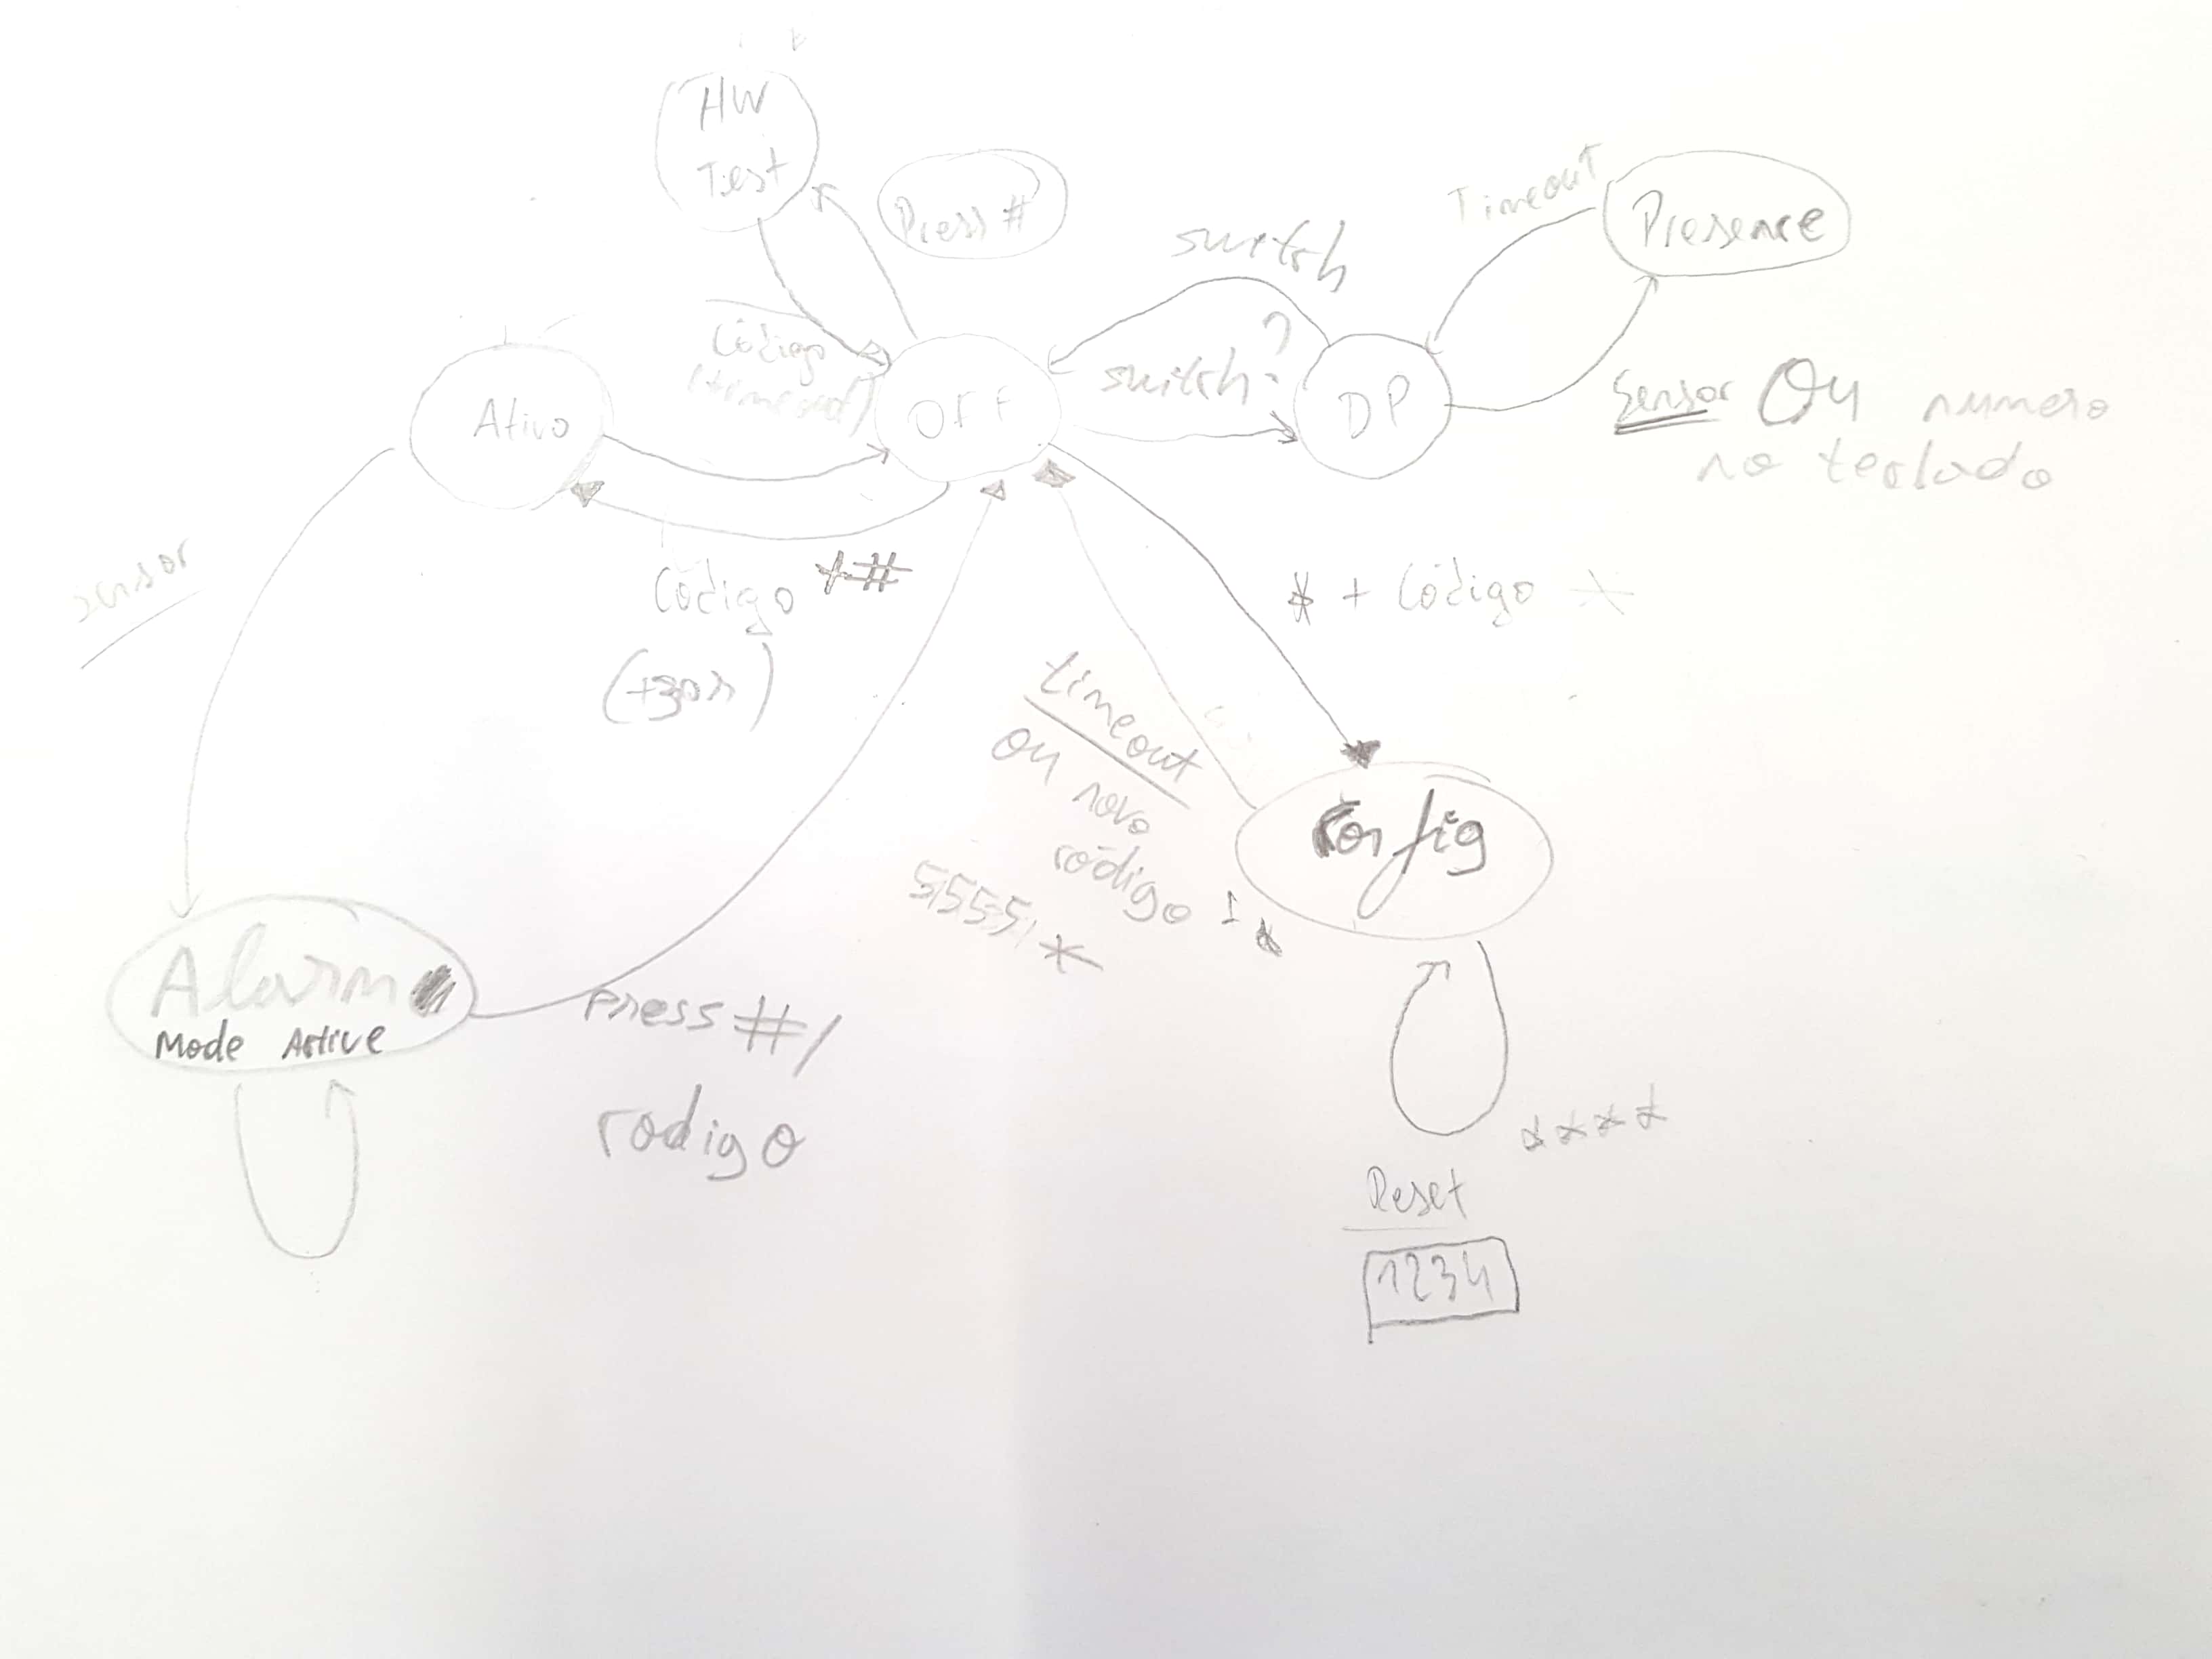 HW
Test
Press #
Timeout
Presence
switch
switch?
Código
(timeout)
Ativo
OFF
DP
Sensor Ou numero
no teclado
sensor
Código +#
(+30s)
* + Código *
timeout
ou novo
código + *
5555 *
Config
Alarm
Mode Active
Press #/
codigo
****
Reset
1234